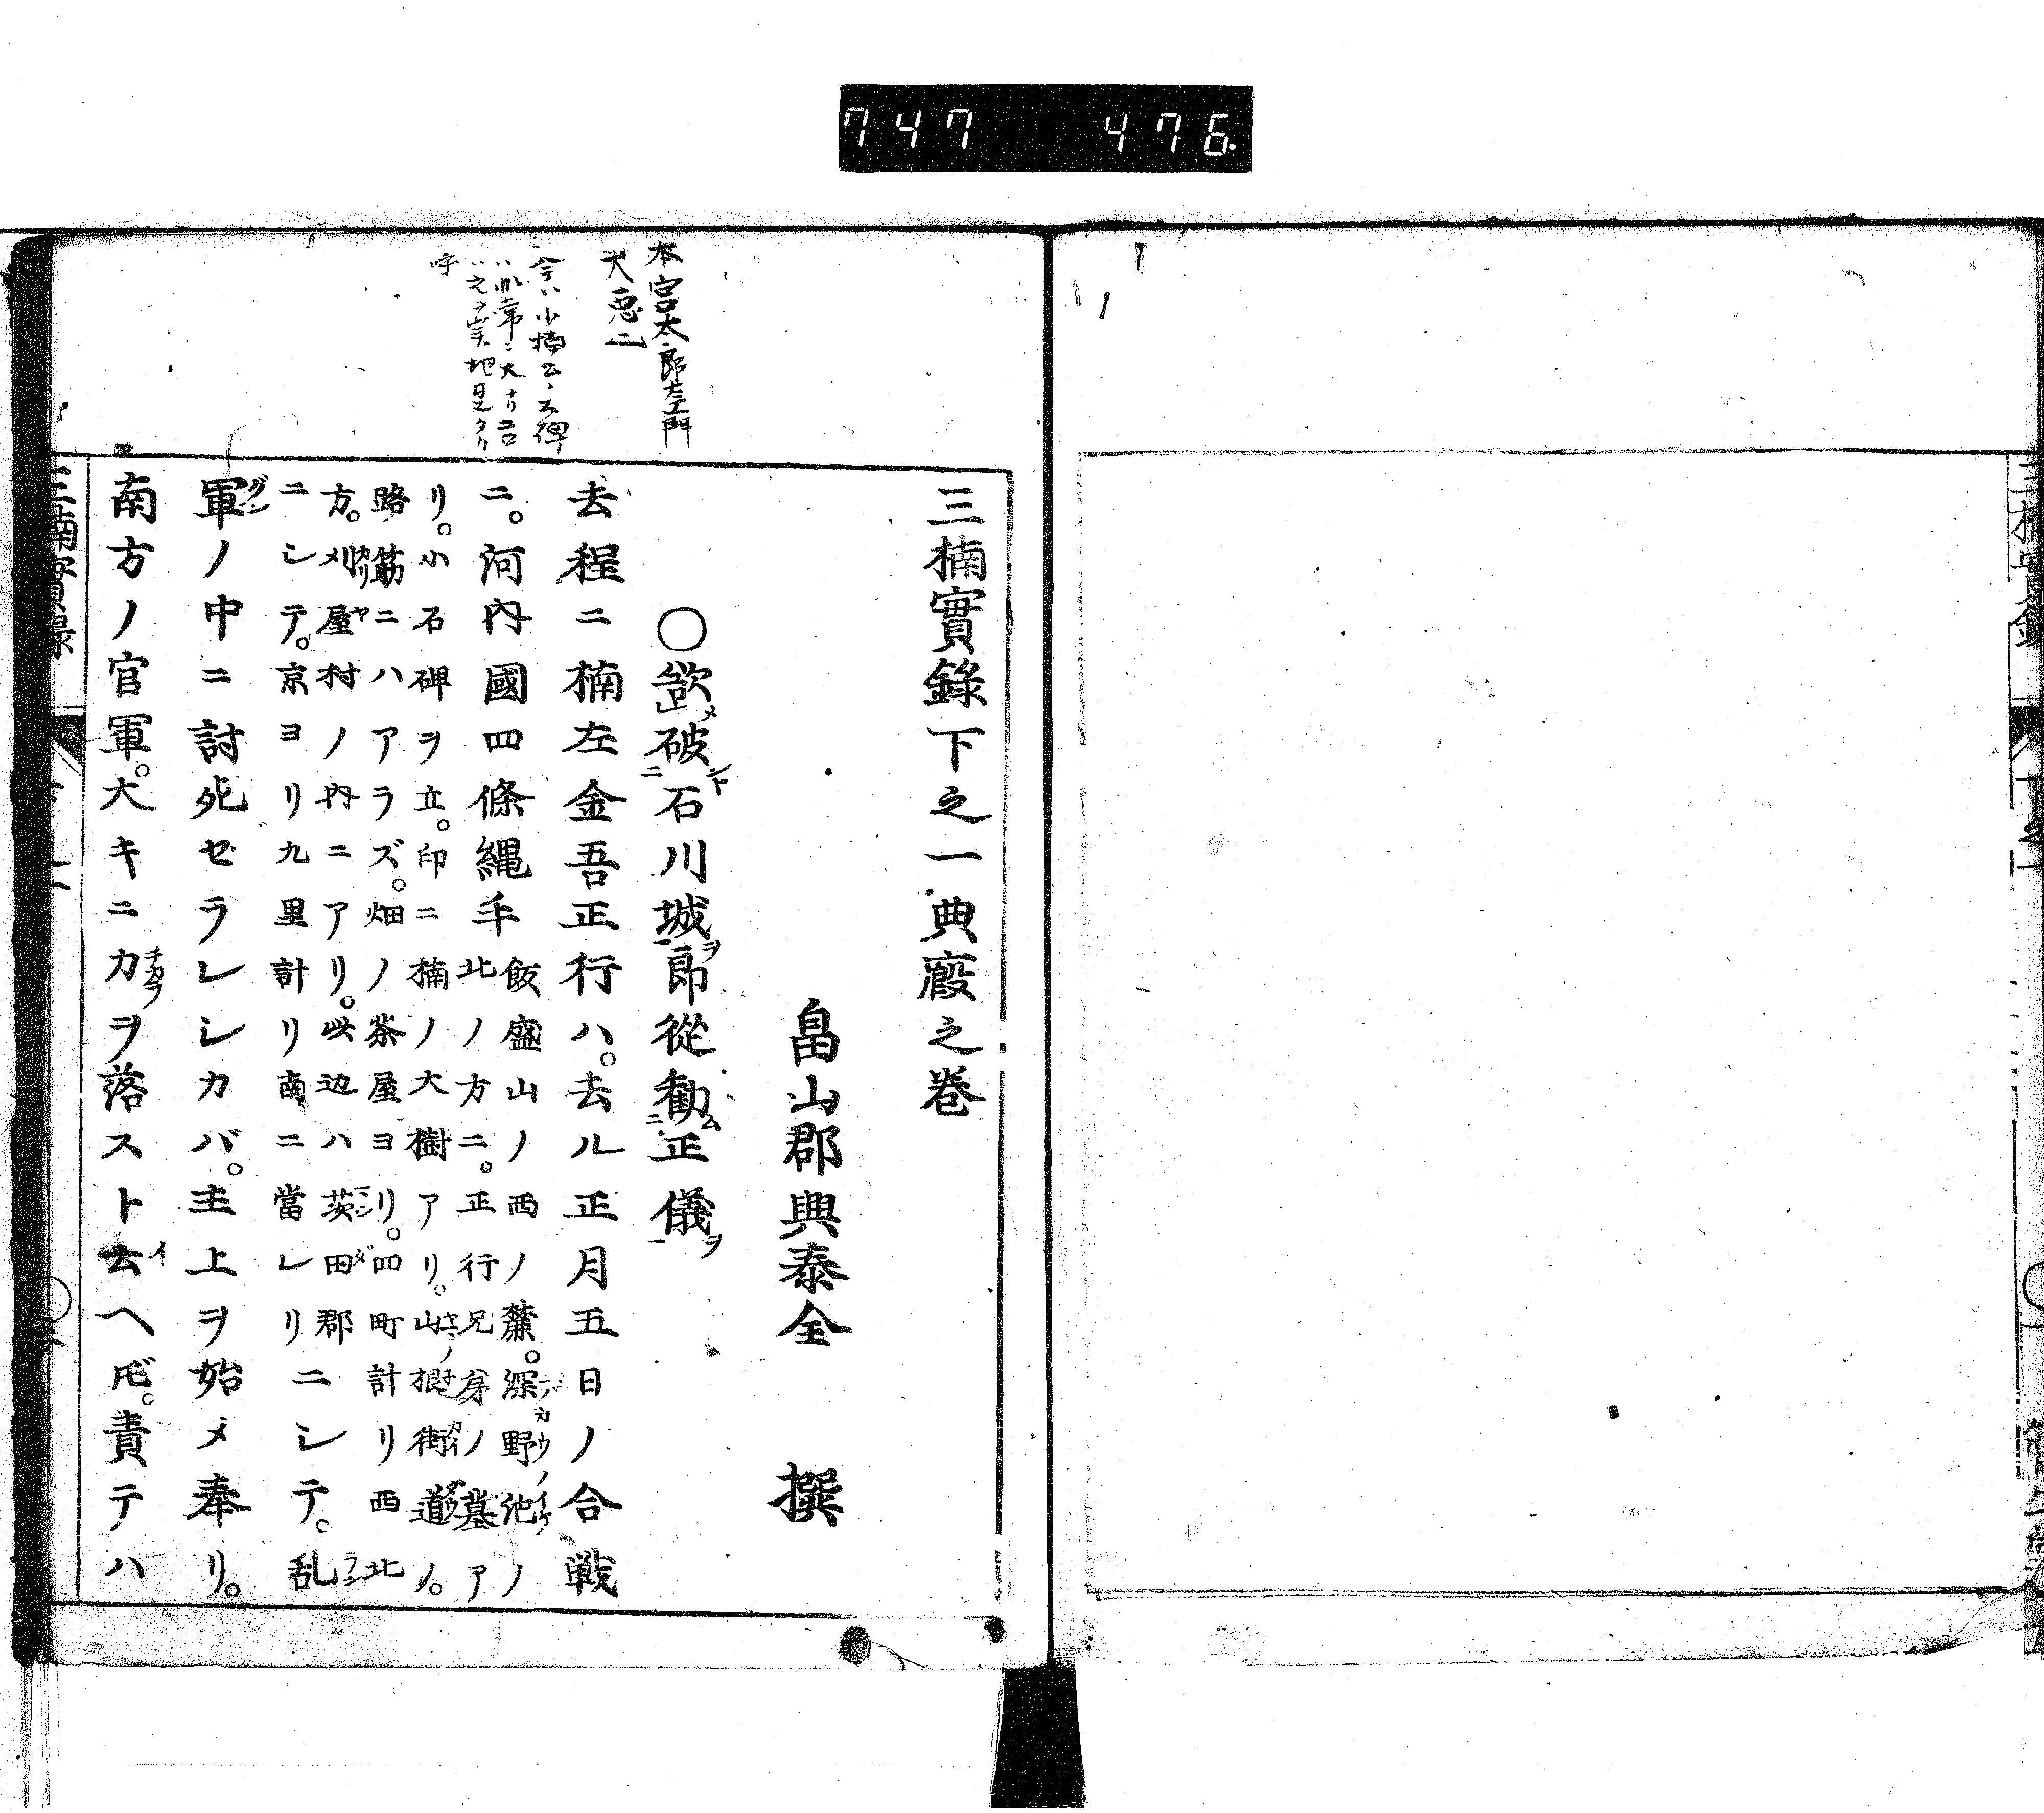 747 476
本宮太郎左エ門
大惡ニ
今ハ小楠公ノ大碑
呼
三楠實錄下之一 典廏之巻
畠山郡興泰全 撰
○欲メ破ント石川城ヲ郎從勸ム正儀ヲ
去程ニ楠左金吾正行ハ。去ル正月五日ノ合戦
ニ。河内國四條縄手
飯盛山ノ西ノ麓。深野池ノ
北ノ方ニ。正行兄弟ノ墓ア
リ。小石碑ヲ立。印ニ楠ノ大樹アリ。山根街道ノ。
路筋ニハアラズ。畑ノ茶屋ヨリ。四町計リ西北
方。刈屋村ノ内ニアリ。此辺ハ茨田郡
ニシテ。京ヨリ九里計リ南ニ當レリ
ニシテ。乱
軍ノ中ニ討死セラレシカバ。主上ヲ始メ奉リ。
南方ノ官軍。大キニ力ヲ落スト云ヘ𪜈。責テハ
三楠實録